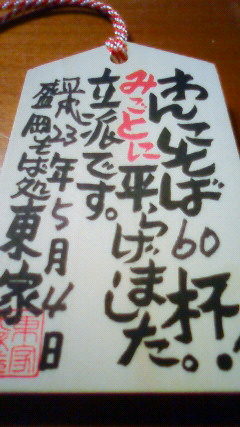 わんこそば60杯!!
みごとに平らげました。
立派です。
平成23年5月4日
盛岡そば処東家
東家